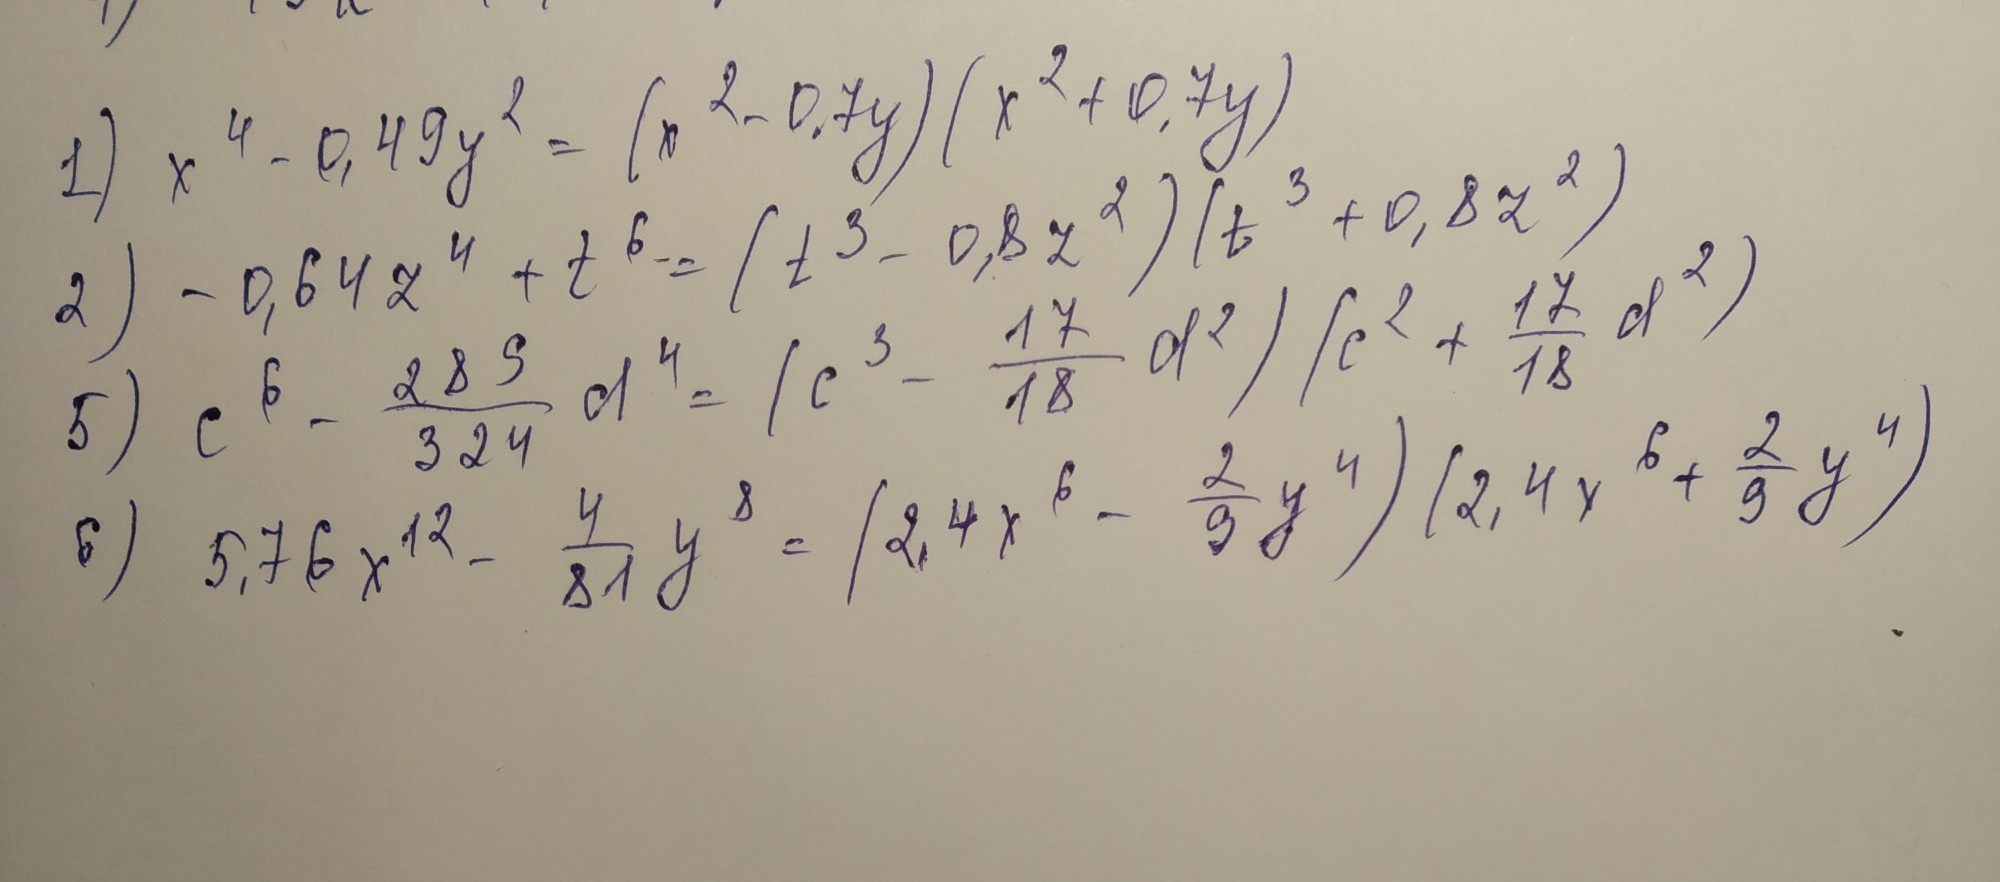 1) x⁴ - 0,49y² = (x² - 0,7y)(x² + 0,7y)
2) - 0,64z⁴ + t⁶ = (t³ - 0,8z²)(t³ + 0,8z²)
5) c⁶ - 289/324 d⁴ = (c³ - 17/18 d²)(c² + 17/18 d²)
6) 5,76x¹² - 4/81 y⁸ = (2,4x⁶ - 2/9 y⁴)(2,4x⁶ + 2/9 y⁴)